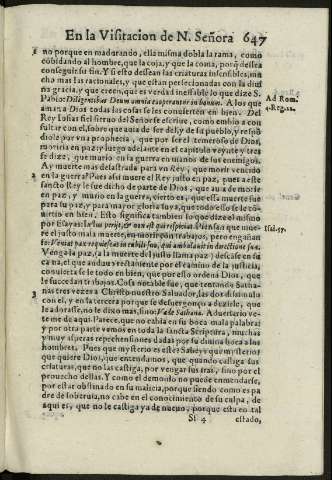 En la Visitacion de N. Señora 647
no porque en madurando, ella misma dobla la rama, como
cõbidando al hombre, que la coja, y que la coma, porq̃ desea
conseguir su fin. Y si esto desean las criaturas insensibles, mu
cho mas las racionales, y que estan perfecionadas con la diui
na gracia, y que creen, que es verdad infalible lo que dize S.
Pablo: Diligentibus Deum omnia cooperantur in bonum. A los que
aman a Dios todas las cosas se les conuierten en bien. Del
Rey Iosias fiel sieruo del Señor se escriue, como embio a con
sultar con el, sobre que auia de ser del, y de su pueblo, y respõ
diole, por vna prophecia, que por ser hombre justo, el Rey
moriria en paz: y luego adelante en el capitulo veynte y tres
se dize, que murio en la guerra en manos de sus enemigos.
Ay muerte mas desastrada para vn Rey, que morir vencido
en la guerra? Pues assi muere el Rey justo en paz, pues a este
sancto Rey le fue dicho de parte de Dios, que auia de morir
en paz, y murio en guerra, cierto es, que esta muerte fue
para su paz, y para mayor gloria suya, que todo esso se le con
uirtio en bien. Esto significa tambien lo que dize el mismo
por Esayas: Iustus perijt, &
Venga la paz, (a la muerte del justo llama paz) descanse en su
cama, el que anduuo rectamente por el camino de la justicia,
conuierta se le todo en bien, que por esso ordenà Dios, que
le sucedan trabajos. Cosa notable fue, que tentando Satha-
nas tres vezes a Christo nuestro Saluador, las dos dissimula
con el, y en la tercera porque se desuergonço a dezirle, que
le adorasse, no le dixo mas, sino: Vade Sathana. Aduertido ve
reys de aqui. Parece, que no cabia en su boca mala palabra
y por otra parte vemos en toda la sancta Scriptura, muchas
y muy asperas reprehensiones dadas por su diuina boca a los
hombres. Pues que mysterio es este? Sabeys que mysterio?
que quiere Dios, que entendamos, que quando castiga sus
criaturas, que no las castiga, por vengar sus yras, sino por el
prouecho dellas. Y como el demonio no puede enmendarse,
por estar obstinado en su malicia, porque siendo como es pa
dre de soberuia, no cabe en el conocimiento de su culpa, de
aqui es, que no le castiga ya de nueuo, porque esta en tal
Sſ 4 estado,
1
2
3
Ad Rom.
4. Reg. 22.
Isai. 57.